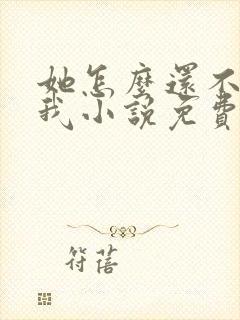 她怎麼還不
我小說免費
符蓓